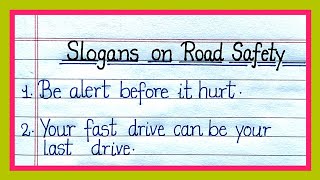 Slogans on Road Safety
1. Be alert before it hurt.
2. Your fast drive can be your
last drive.